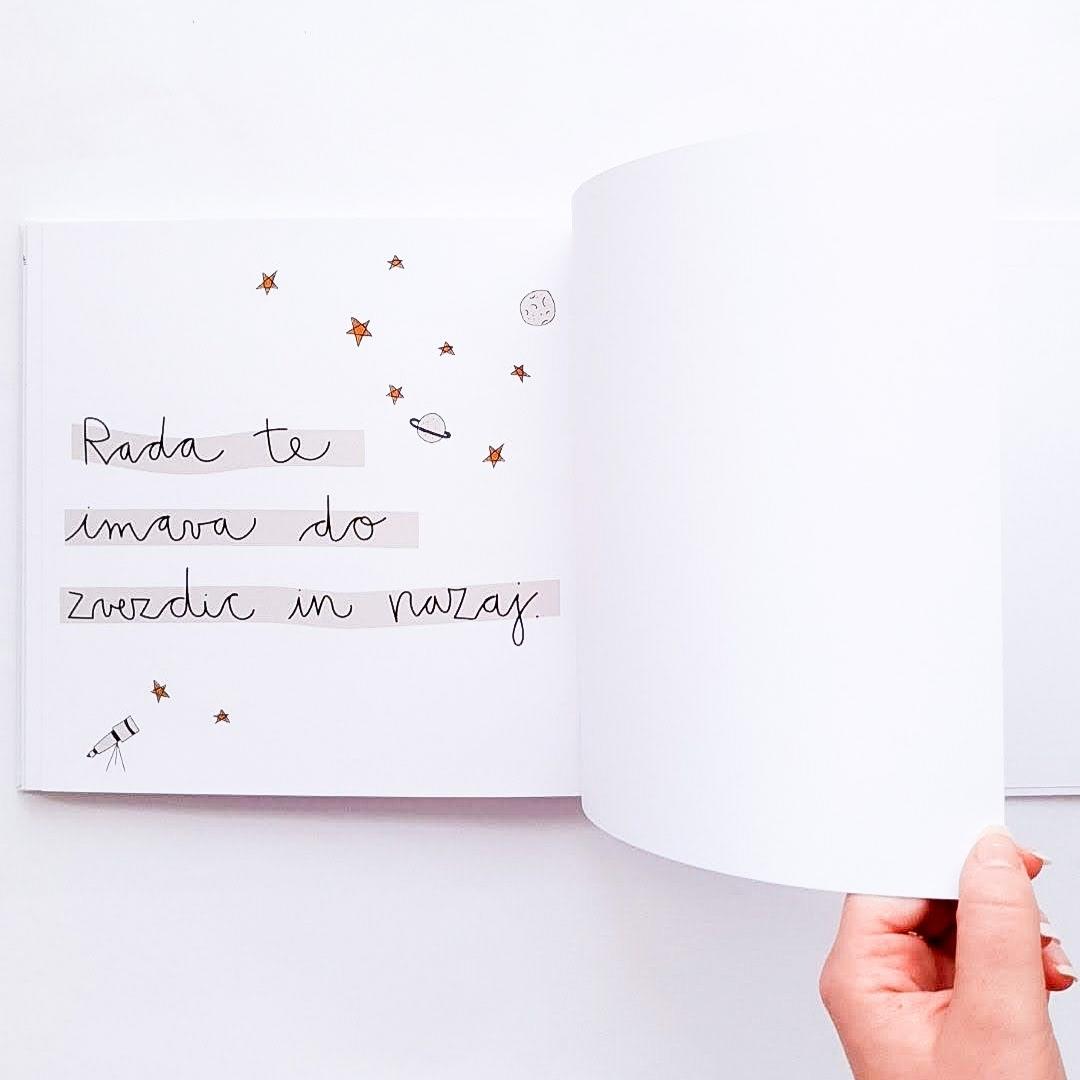 Rada te
imava do
zvezdic in nazaj.